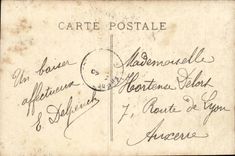 CARTE POSTALE
Un baiser
affectueux
E. Delpinch
Mademoiselle
Hortense Delort
7, Route de Lyon
Auxerre